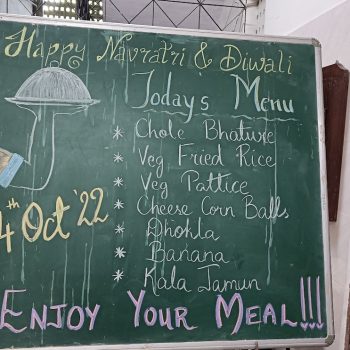 Happy Navratri & Diwali
Today's Menu
* Chole Bhature
* Veg Fried Rice
* Veg Pattice
* Cheese Corn Balls
* Dhokla
* Banana
* Kala Jamun
4th Oct '22
Enjoy Your Meal!!!